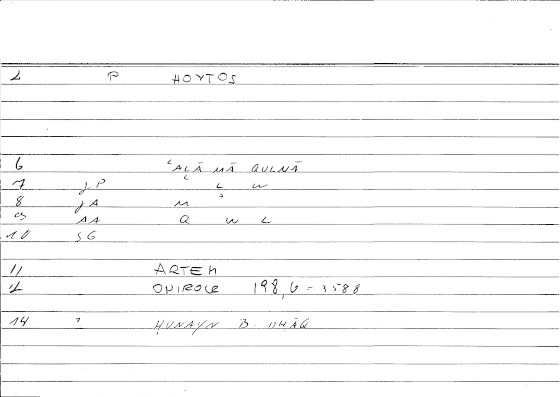 2 P HOYTOS
6 ʿALĀ MĀ QULNĀ
7 JP ʿ L W
8 JA M
9 AA Q W L
10 SG
11 ARTEM
12 ONIROCR 198,6-3588
14 ? ḤUNAYN B. IṢḤĀQ